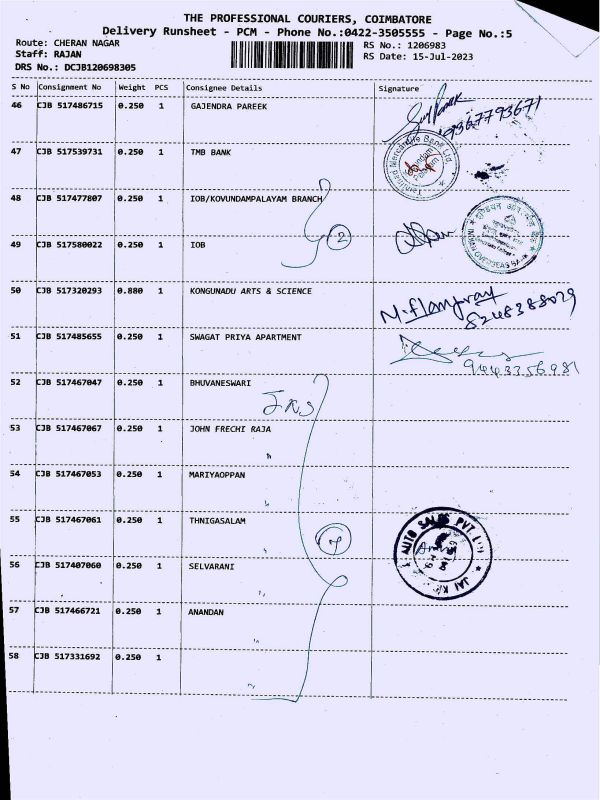 THE PROFESSIONAL COURIERS, COIMBATORE
Delivery Runsheet - PCM - Phone No.:0422-3505555 - Page No.:5
Route: CHERAN NAGAR
Staff: RAJAN
DRS No.: DCJB120698305
RS No.: 1206983
RS Date: 15-Jul-2023
S No Consignment No Weight PCS Consignee Details Signature
46 CJB 517486715 0.250 1 GAJENDRA PAREEK
9367793671
47 CJB 517539731 0.250 1 TMB BANK
Tamilnad Mercantile Bank Ltd.
48 CJB 517477807 0.250 1 IOB/KOVUNDAMPALAYAM BRANCH
2
INDIAN OVERSEAS BANK
49 CJB 517580022 0.250 1 IOB
50 CJB 517320293 0.880 1 KONGUNADU ARTS & SCIENCE
8248388029
51 CJB 517485655 0.250 1 SWAGAT PRIYA APARTMENT
9443356981
52 CJB 517467047 0.250 1 BHUVANESWARI
53 CJB 517467067 0.250 1 JOHN FRECHI RAJA
54 CJB 517467053 0.250 1 MARIYAOPPAN
55 CJB 517467061 0.250 1 THNIGASALAM
7
AUTO SALES PVT. LTD
JAI
56 CJB 517407060 0.250 1 SELVARANI
57 CJB 517466721 0.250 1 ANANDAN
58 CJB 517331692 0.250 1